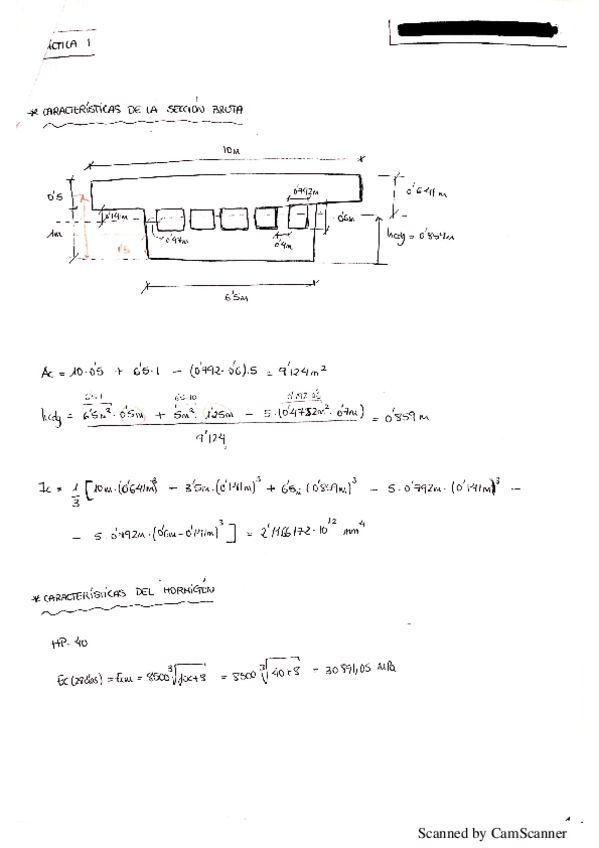 ÁCTICA 1
* CARACTERÍSTICAS DE LA SECCIÓN BRUTA
10m
0'5
1m
0'141m
0'792m
0'6m
0'47m
0'4m
0'641m
hcdg = 0'859m
6'5m
Ac = 10·0'5 + 6'5·1 - (0'792·0'6)·5 = 9'124m²
hcdg = 6'5m²·0'5m + 5m²·1'25m - 5·(0'4752m²·0'7m) = 0'859m
9'124
Ic = 1/3 [10m·(0'641m)³ - 3'5m·(0'141m)³ + 6'5m·(0'859m)³ - 5·0'792m·(0'141m)³ -
- 5·0'792m·(0'6m-0'141m)³] = 2'1166172·10¹² mm⁴
* CARACTERÍSTICAS DEL HORMIGÓN
HP-40
Ec(28días) = Ecm = 8500 ∛fck+8 = 8500 ∛40+8 = 30891,05 MPa
Scanned by CamScanner